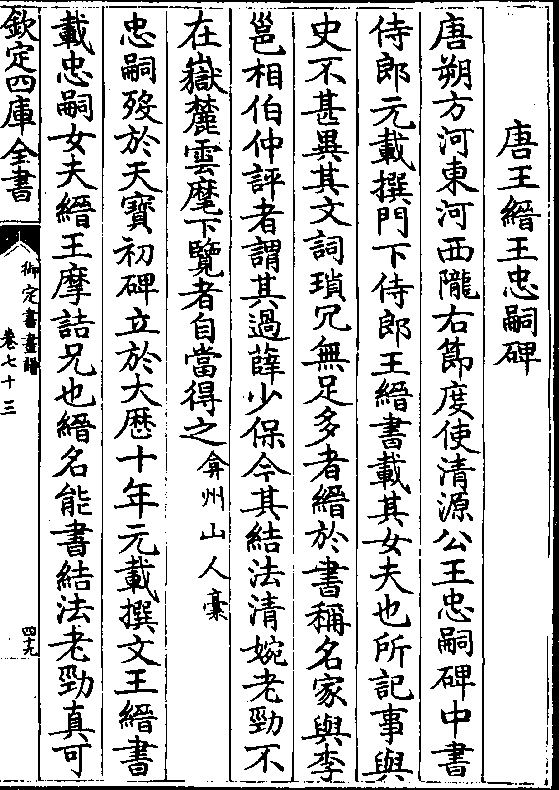 唐王縉王忠嗣碑
唐朔方河東河西隴右節度使清源公王忠嗣碑中書
侍郎元載撰門下侍郎王縉書載其女夫也所記事與
史不甚異其文詞瑣冗無足多者縉於書稱名家與李
邕相伯仲評者謂其過薛少保今其結法清婉老勁不
在嶽麓雲麾下覽者自當得之弇州山人稾
忠嗣歿於天寳初碑立於大厯十年元載撰文王縉書
載忠嗣女夫縉王摩詰兄也縉名能書結法老勁真可
欽定四庫全書
御定書畫譜
卷七十三
四十九